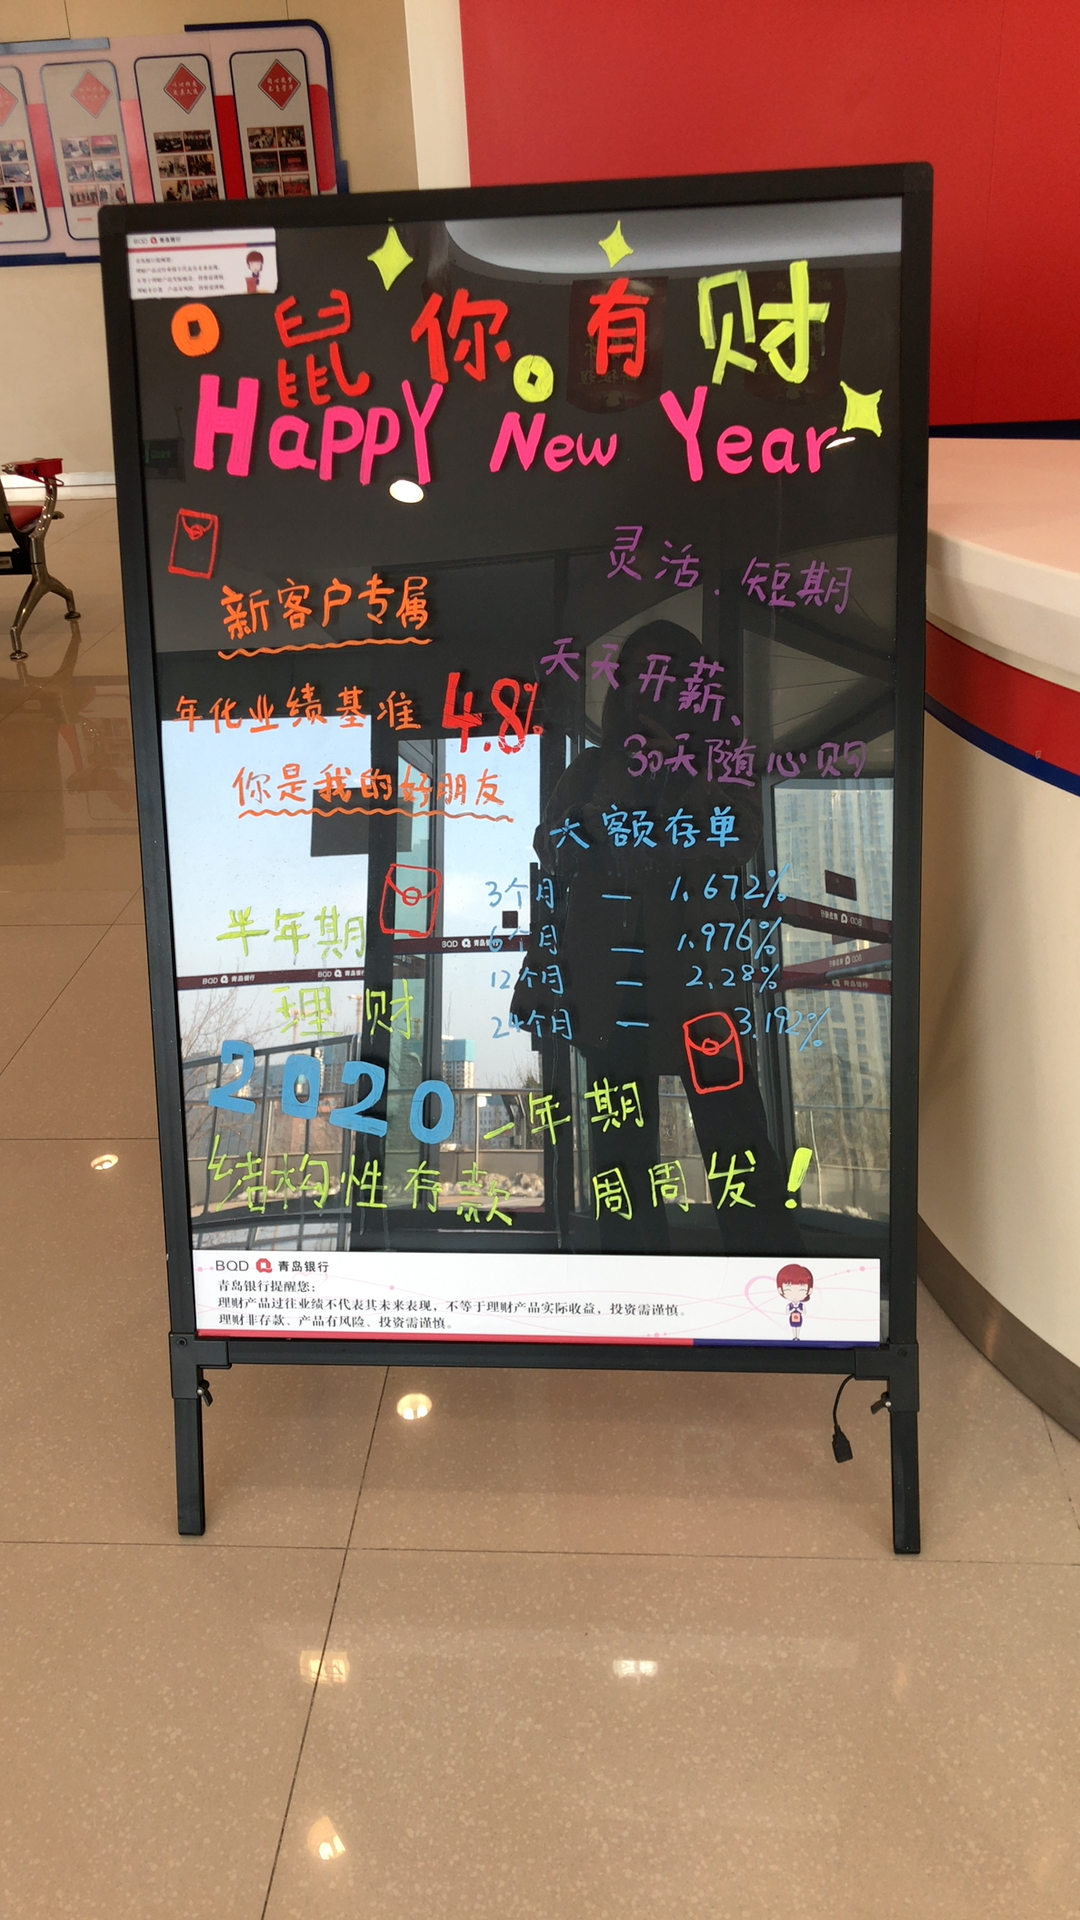 BQD 青岛银行
鼠你有财
Happy New Year
新客户专属
年化业绩基准 4.8%
你是我的好朋友
灵活、短期
天天开薪、
30天随心购
大额存单
3个月 — 1.672%
6个月 — 1.976%
12个月 — 2.28%
24个月 — 3.192%
半年期
理财
2020 一年期
结构性存款 周周发!
BQD 青岛银行
青岛银行提醒您:
理财产品过往业绩不代表其未来表现,不等于理财产品实际收益,投资需谨慎。
理财非存款、产品有风险、投资需谨慎。